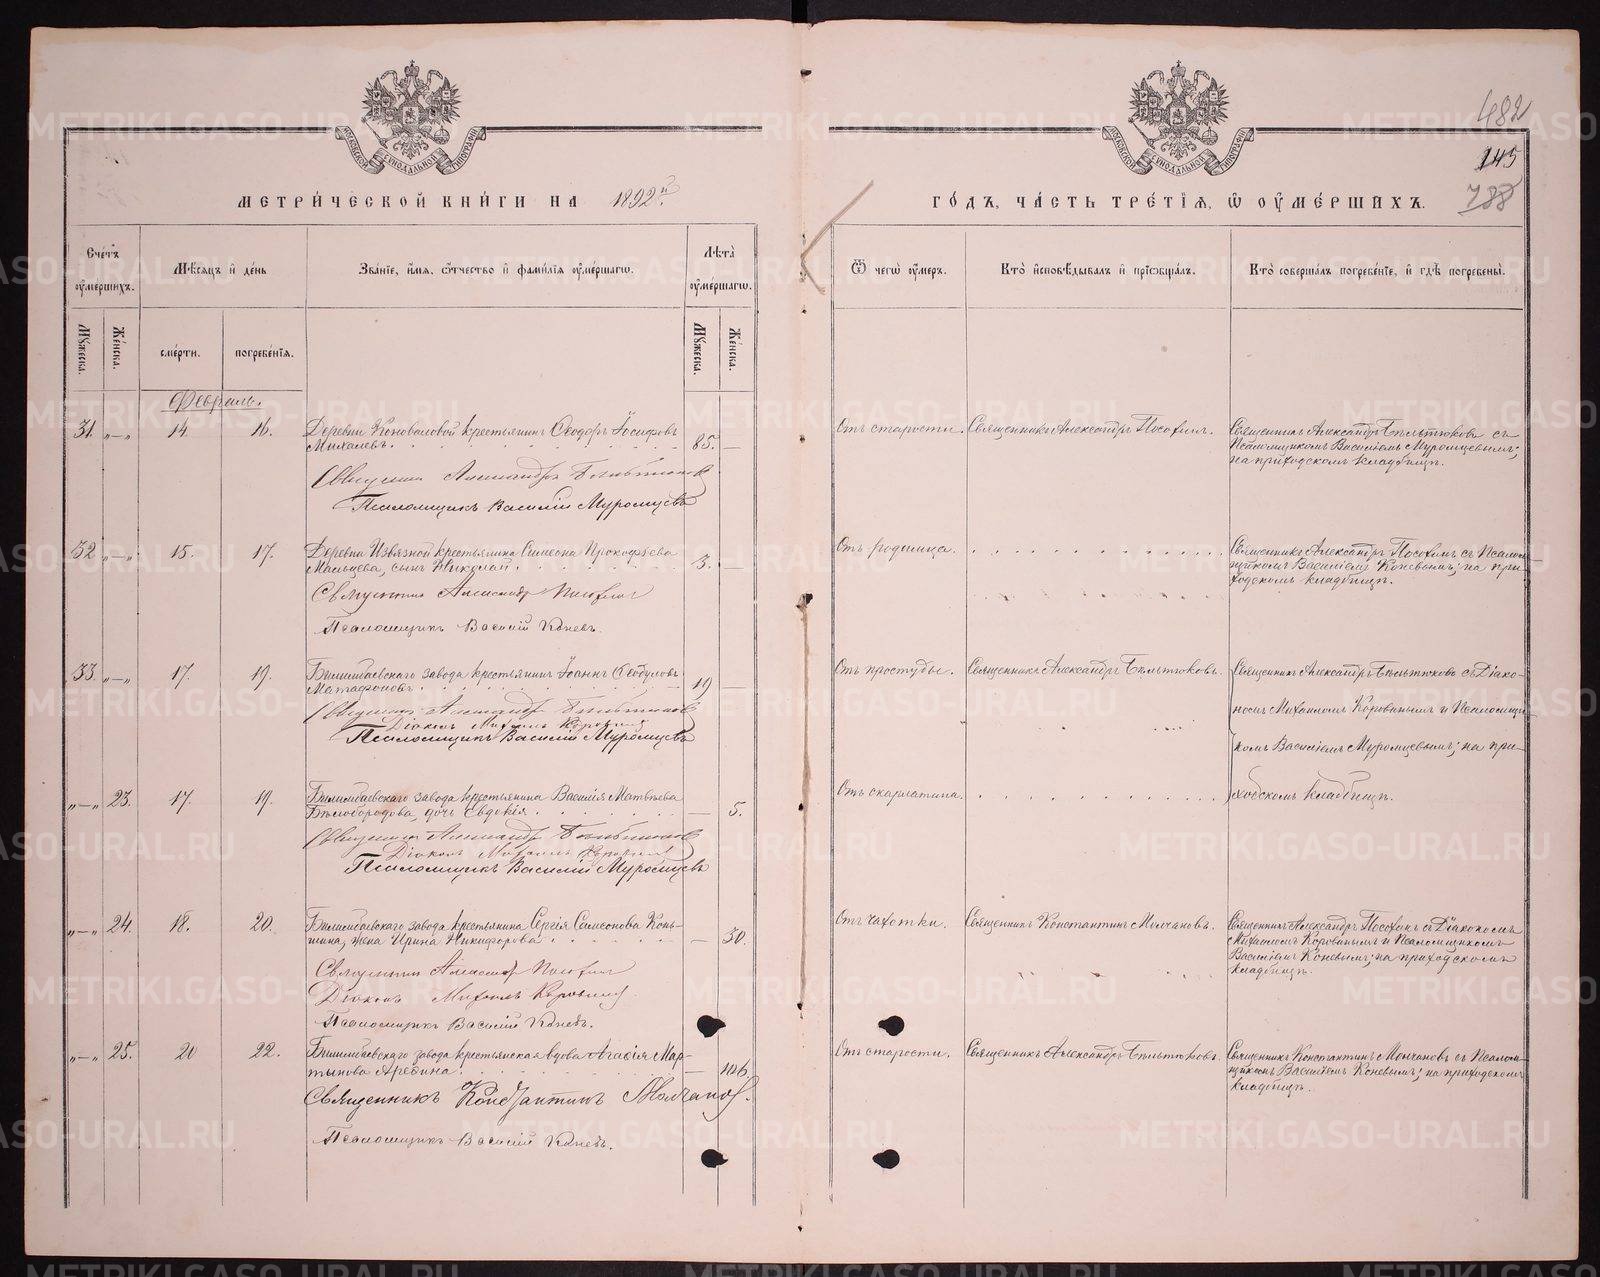 482
145
788
МЕТРИ́ЧЕСКОЙ КНИ́ГИ НА 1892й.
ГО́ДЪ, ЧА́СТЬ ТРЕ́ТІѦ, Ѿ ОУ҆МЕ́РШИХЪ.
Счетъ оумершихъ.
Мѣсяцъ и день
Званіе, имя, отчество и фамилія оумершагѡ.
Лѣта оумершагѡ.
Мужеска.
Женска.
смерти.
погребенія.
Мужеска.
Женска.
Ѿ чегѡ оумеръ.
Кто исповѣдывалъ и пріѡбщалъ.
Кто совершалъ погребеніе, и гдѣ погребены.
Февраль.
31. „—„ 14. 16. Деревни Коноваловой крестьянинъ Ѳеодоръ Іосифовъ
Михалевъ. 85. —
Священникъ Александръ
Псаломщикъ Василій Муромцевъ
Отъ старости. Священникъ Александръ Посохинъ.
Священникъ Александръ Бѣльтюковъ съ
Псаломщикомъ Василіемъ Муромцевымъ;
на приходскомъ кладбищѣ.
32 „—„ 15. 17. Деревни Извязной крестьянина Симеона Прокофьева
Мальцева, сынъ Николай. 3. —
Священникъ Александръ Посохинъ
Псаломщикъ Василій Коневъ.
Отъ родимца.
Священникъ Александръ Посохинъ съ Псалом-
щикомъ Василіемъ Коневымъ; на при-
ходскомъ кладбищѣ.
33. „—„ 17. 19. Билимбаевскаго завода крестьянинъ Іоаннъ
Матафоновъ. 19 —
Священникъ Александръ
Діаконъ Михаилъ
Псаломщикъ Василій Муромцевъ
Отъ простуды. Священникъ Александръ Бѣльтюковъ.
Священникъ Александръ Бѣльтюковъ съ Діако-
номъ Михаиломъ Коровинымъ и Псаломщи-
комъ Василіемъ Муромцевымъ; на при-
ходскомъ кладбищѣ.
„—„ 23. 17. 19. Билимбаевскаго завода крестьянина Василія Матвѣева
Бѣлобородова, дочь Евдокія. — 5.
Священникъ Александръ
Діаконъ Михаилъ
Псаломщикъ Василій Муромцевъ
Отъ скарлатина.
„—„ 24. 18. 20. Билимбаевскаго завода крестьянина Сергія Симеонова Конь-
шина, жена Ирина Никифорова. — 30.
Священникъ Александръ Посохинъ
Діаконъ Михаилъ Коровинъ
Псаломщикъ Василій Коневъ.
Отъ чахотки. Священникъ Константинъ Молчановъ.
Священникъ Александръ Посохинъ съ Діакономъ
Михаиломъ Коровинымъ и Псаломщикомъ
Василіемъ Коневымъ; на приходскомъ
кладбищѣ.
„—„ 25. 20 22. Билимбаевскаго завода крестьянская вдова Агафія Мар-
тынова Аредина. — 106.
Священникъ Константинъ Молчановъ.
Псаломщикъ Василій Коневъ.
Отъ старости. Священникъ Александръ Бѣльтюковъ.
Священникъ Константинъ Молчановъ съ Псалом-
щикомъ Василіемъ Коневымъ; на приходскомъ
кладбищѣ.
METRIKI.GASO-URAL.RU